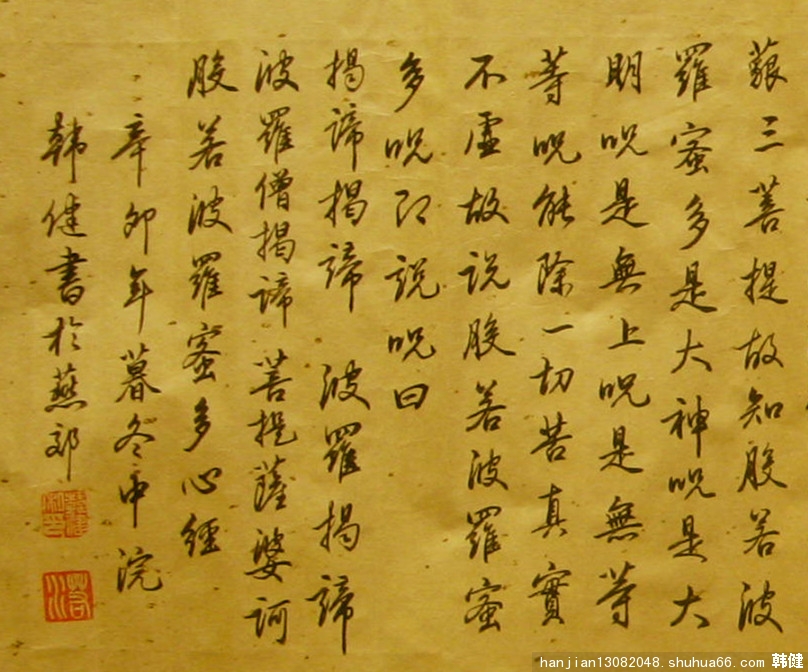 藐三菩提故知般若波
羅蜜多是大神呪是大
明呪是無上呪是無等
等呪能除一切苦真實
不虛故说般若波羅蜜
多呪即說呪曰
揭諦揭諦 波羅揭諦
波羅僧揭諦 菩提薩婆訶
般若波羅蜜多心經
辛卯年暮冬中浣
韓健書於燕郊
hanjian13082048.shuhua66.com 韩健